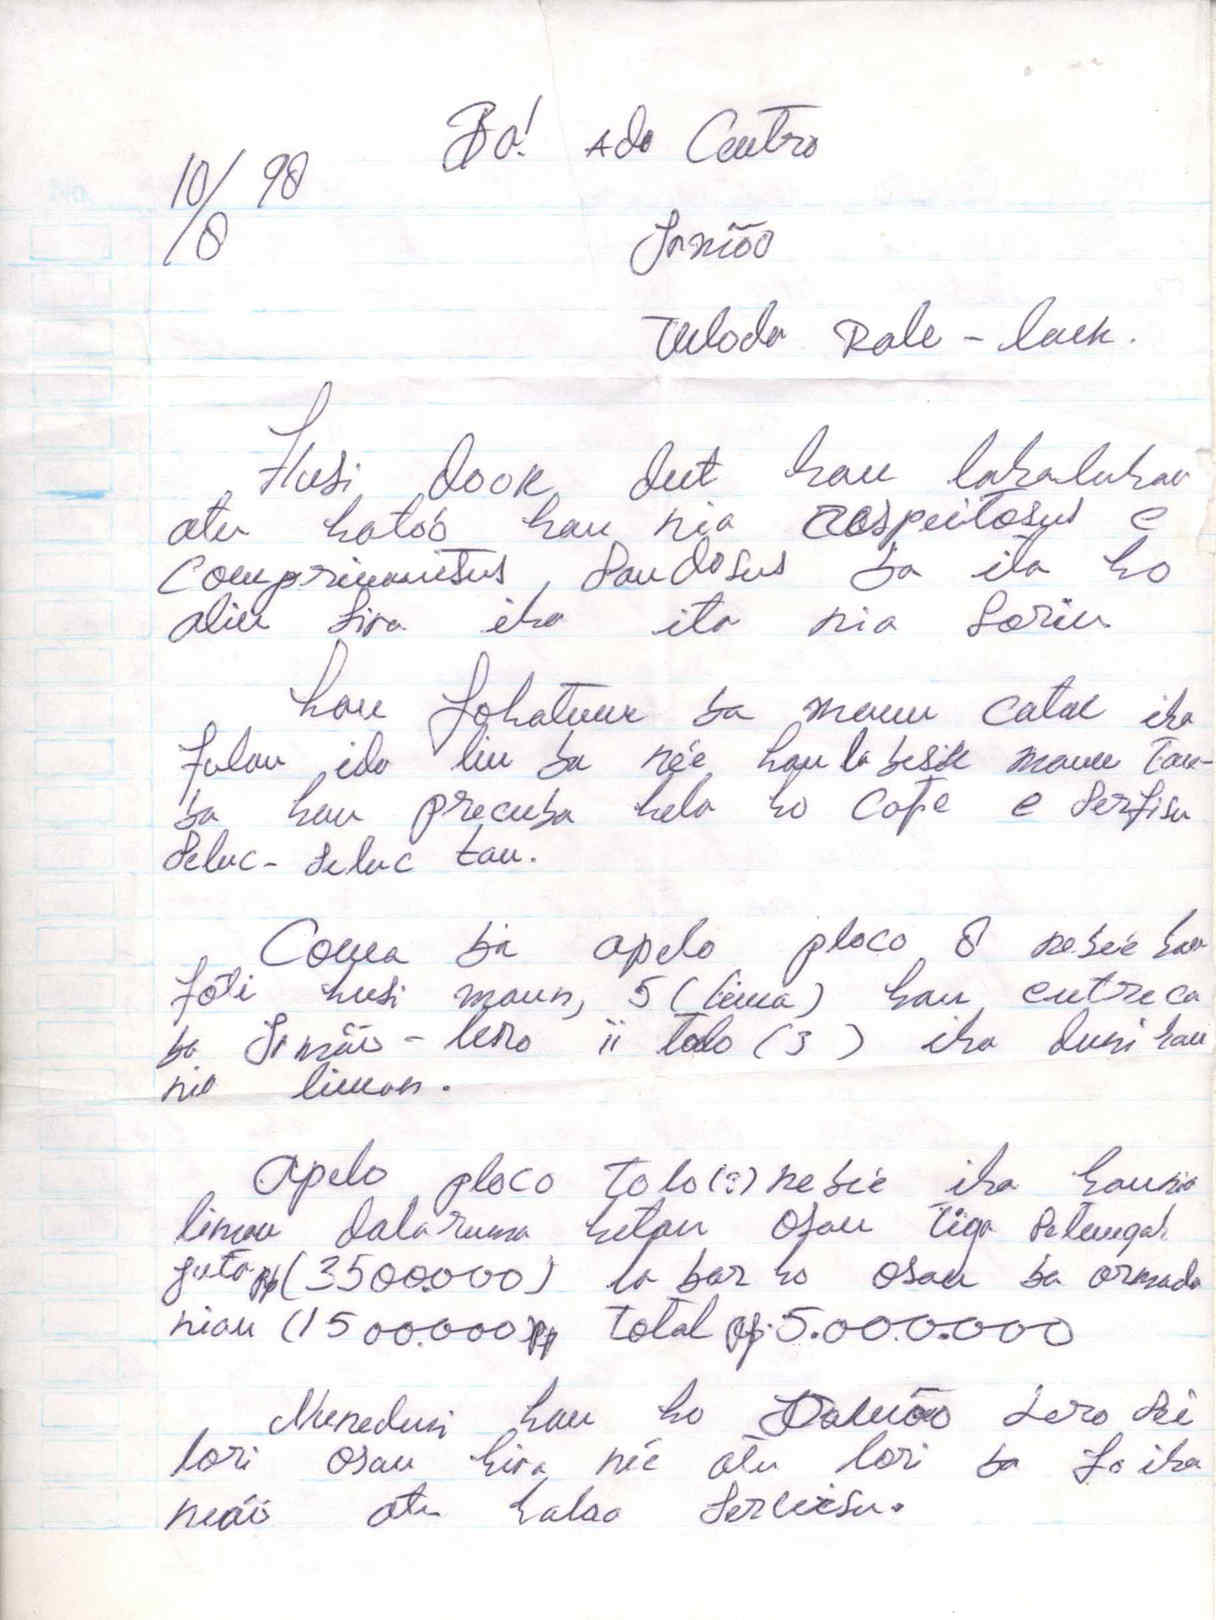 Ba! Ado Centro
10/8 98
Irmão
Tuloda Rale - Laek.
Husi dook deit hau lahaluhan
atu hatóo hau nia respeitosus e
comprimentus, saudosus ba ita ho
alin sira iha ita nia sorin
hau fohatene ba maun catac iha
fulan ida liu ba née hau la besik maun tan-
ba hau precuba hela ho Cope e serfisu
seluc - seluc tan.
Cona ba apelo ploco 8 nebée hau
foti husi maun, 5 (lima) hau entreca
ba Irmão - Lero ii tolo (3) iha dusi hau
nia liman.
Apelo ploco tolo (3) nebée iha haunia
liman dalaruma hetan osan tiga setengah
juta Rp (3500.000) la bar ho osan ba armada
nian (1500.000 Rp total Rp. 5.000.000
Menedusi hau ho Lero sei
lori osan hira néé atu lori ba fo iha
neáá atu halao serviesu.